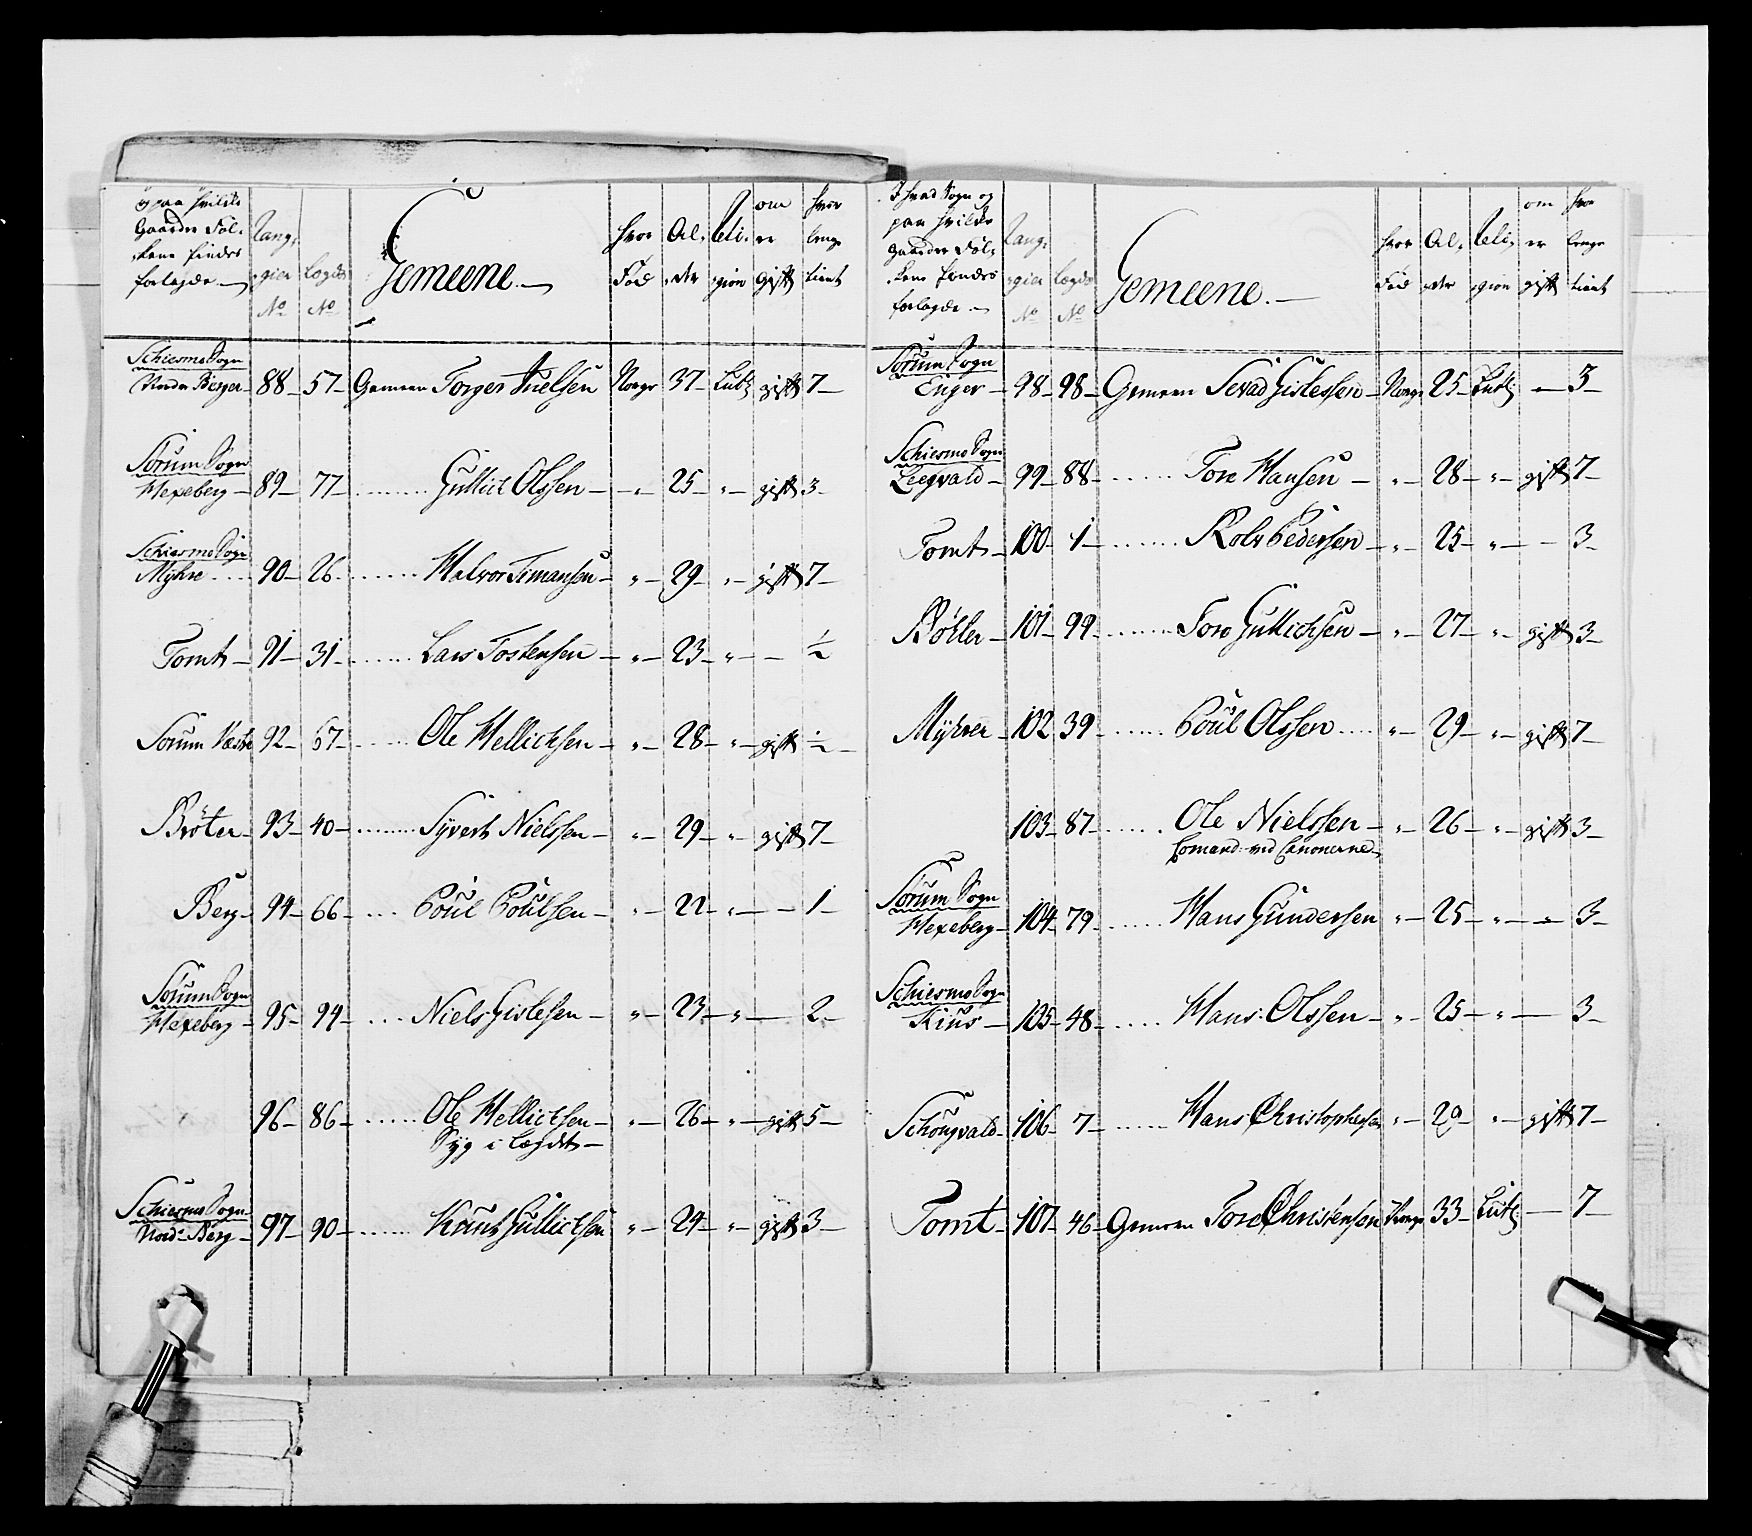 og paa hvilke
Gaarder Fol-
kene findes
forlagde.
Rang-
gier
No
Lægds
No
Gemeene.
hvor
Fød
Al-
der
Reli-
gion
om
er
Gift
hvor
lenge
tient
Schiesmo Sogn
Nædre Berger 88 57 Gemeen Torger Nielsen Norge 37 Luth: gift 7
Sørum Sogn
Hexeberg 89 77 Gullich Olssen " 25 " gift 3
Schiesmo Sogn
Myhre 90 26 Halvor Simansen " 29 " gift 7
Tomt 91 31 Lars Tostensen " 23 " — ½
Sørum Væstre 92 67 Ole Hellichsen " 28 " gift ½
Brøter 93 40 Syvert Nielssen " 29 " gift 7
Berg 94 66 Poul Poulsen " 22 " — 1
Sørum Sogn
Hexeberg 95 94 Niels Gislesen " 23 " — 2
96 86 Ole Hellichsen " 26 " gift 5
Syg i Lægdet
Schiesmo Sogn
Nord Berg 97 90 Knut Gullichsen " 24 " gift 3
I hvad Sogn og
paa hvilke
Gaarder Fol-
kene findes
forlagde.
Rang-
gier
No
Lægds
No
Gemeene.
hvor
Fød
Al-
der
Reli-
gion
om
er
gift
hvor
lenge
tient
Sørum Sogn
Enger 98 98 Gemeen Sevad Gislessen Norge 25 Luth: — 3
Schiesmo Sogn
Leegvald 99 88 Tore Hansen " 28 " gift 7
Tomt 100 1 Rolv Pedersen " 25 " — 3
Bøhler 101 99 Tore Gullichsen " 27 " gift 3
Myhrer 102 39 Poul Olssen " 29 " gift 7
103 87 Ole Nielssen " 26 " gift 3
Comand: ved Canonerne
Sørum Sogn
Hexeberg 104 79 Hans Gundersen " 25 " — 3
Schiesmo Sogn
Kius 105 48 Hans Olssen " 25 " — 3
Schougvald 106 7 Hans Christophersen " 29 " gift 7
Tomt 107 46 Gemeen Tore Christensen Norge 33 Luth: — 7